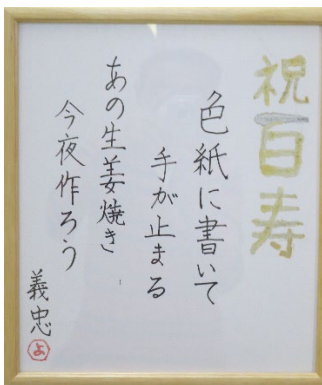 祝百寿
色紙に書いて
手が止まる
あの生姜焼き
今夜作ろう
義忠
よ